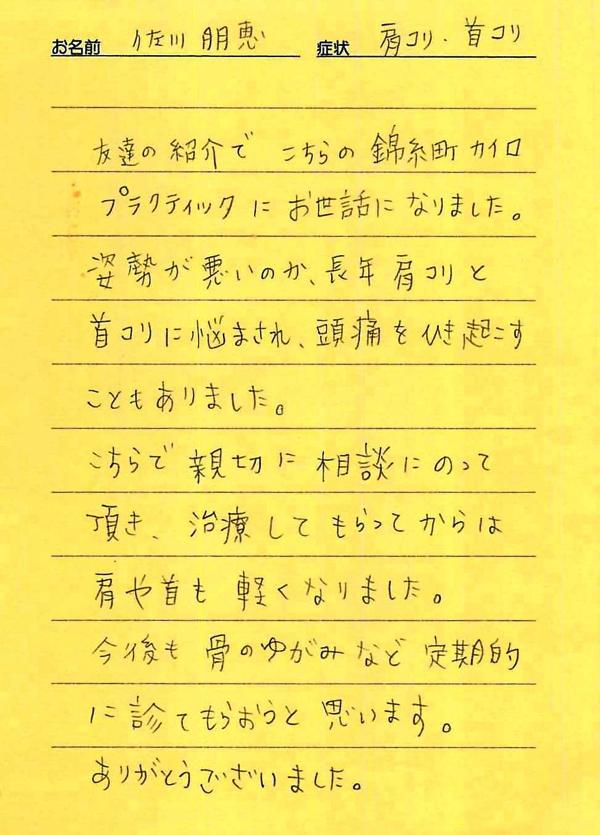 お名前 佐川 朋恵 症状 肩コリ・首コリ
友達の紹介で こちらの錦糸町カイロ
プラクティックにお世話になりました。
姿勢が悪いのか、長年肩コリと
首コリに悩まされ、頭痛をひき起こす
こともありました。
こちらで親切に相談にのって
頂き、治療してもらってからは
肩や首も軽くなりました。
今後も骨のゆがみなど定期的
に診てもらおうと思います。
ありがとうございました。